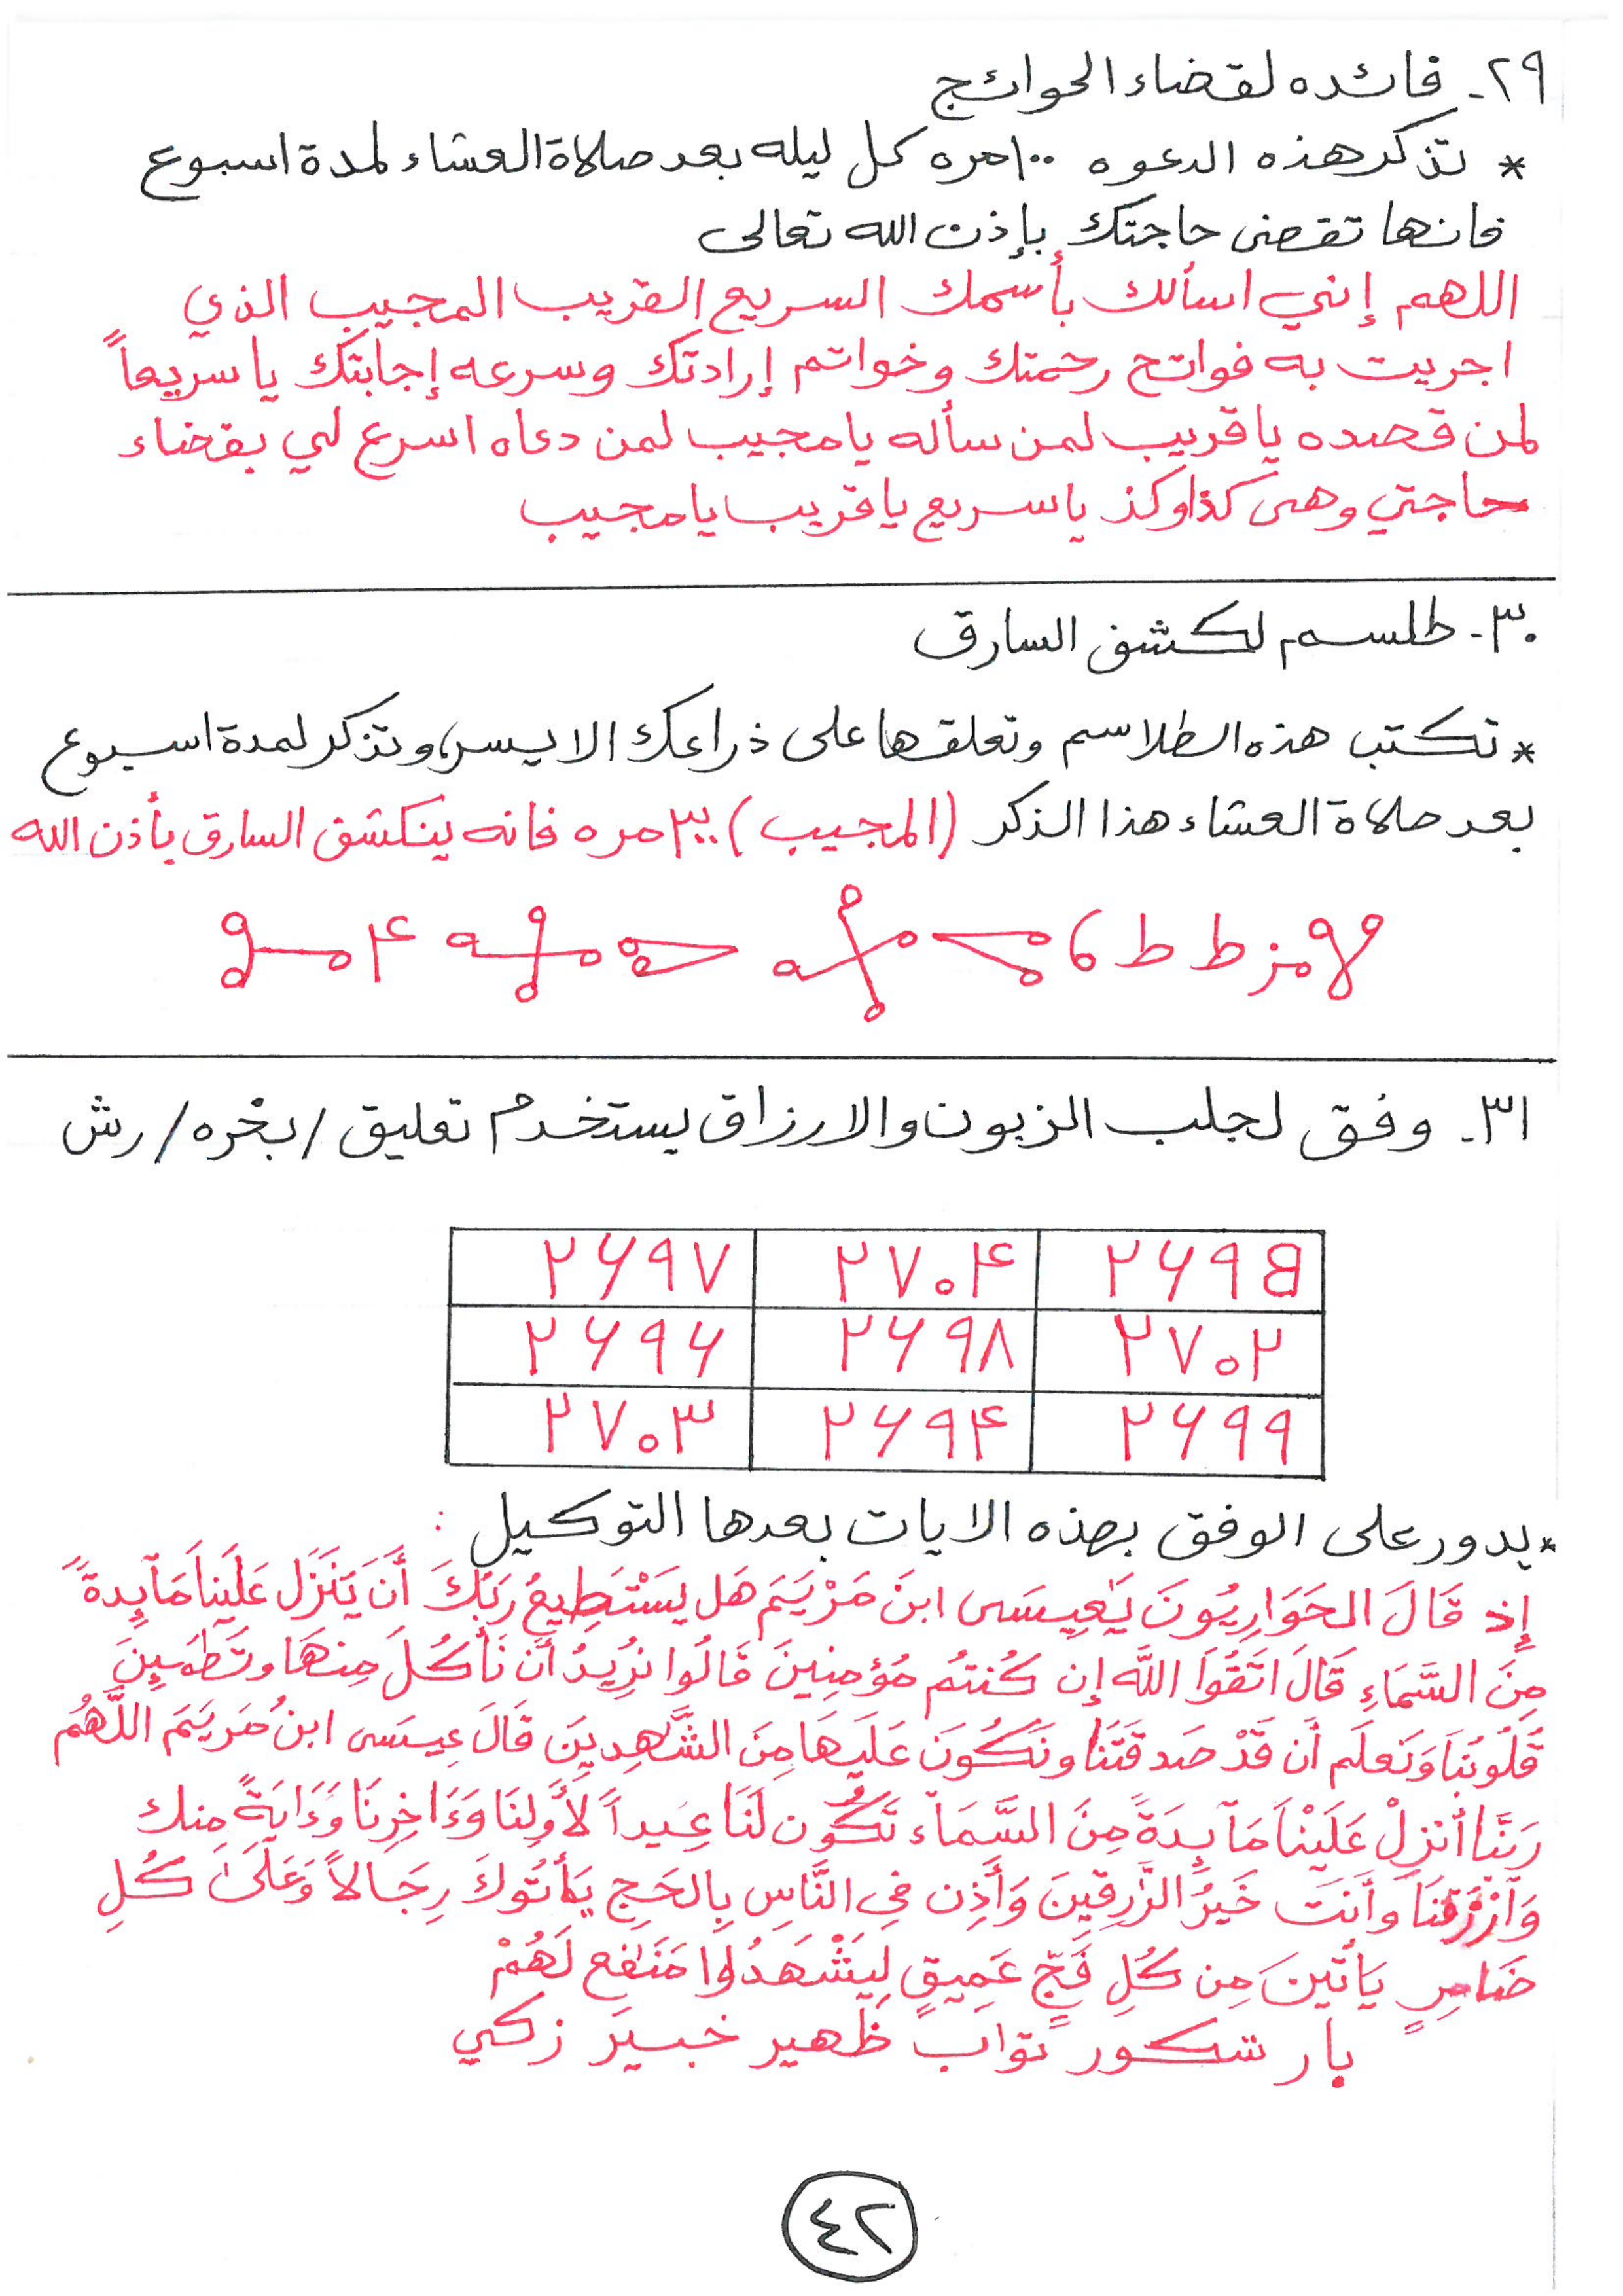 ٢٩- فائده لقضاء الحوائج
* تذكر هذه الدعوه ١٠٠ مره كل ليله بعد صلاة العشاء لمدة اسبوع
فانها تقضى حاجتك بإذن الله تعالى
اللهم إني اسألك بأسمك السريع القريب المجيب الذي
اجريت به فواتح رحمتك وخواتم إرادتك وسرعه إجابتك يا سريعاً
لمن قصده يا قريب لمن سأله يا مجيب لمن دعاه اسرع لي بقضاء
حاجتي وهى كذا وكذ يا سريع يا قريب يا مجيب
٣٠- طلسم لكشف السارق
* تكتب هذه الطلاسم وتعلقها على ذراعك الايسر، وتذكر لمدة اسبوع
بعد صلاة العشاء هذا الذكر (المجيب) ٣٠٠ مره فانه ينكشف السارق بأذن الله
ط ط ۴
٣١- وفق لجلب الزبون والارزاق يستخدم تعليق / بخره / رش
۲۶۹۵ ۲۷۰۴ ۲۶۹۷
۲۷۰۲ ۲۶۹۸ ۲۶۹۶
۲۶۹۹ ۲۶۹۴ ۲۷۰۳
* يدور على الوفق بهذه الايات بعدها التوكيل :
إذ قَالَ الحَوَارِيُونَ يَٰعِيسَى ابنَ مَرْيَمَ هَل يَسْتَطِيعُ رَبُكَ أَن يَنَزَل عَلَينَا مَآىِٕدةً
مِنَ السَّمَاءِ قَالَ اتَقُوَا اللَّه إِن كُنتُم مُؤمِنِينَ قَالُوا نُرِيدُ أَن نَأكُلَ مِنهَا وتَطمَىِٕنَ
قَلُوبُنَا وَنَعلَم أَن قَدْ صَدقتَنَا ونَكُونَ عَلَيهَا مِنَ الشَّٰهِدِينَ قَالَ عِيسَى ابنُ مَريَمَ اللَّهُمَ
رَبَّنَا أَنزِلْ عَلَيْنَا مَآىِٕدَةً مِنَ السَّمَآء تَكُون لَنَا عِيداً لأَوَلِنَا وَءَاخِرِنَا وَءَايَةً مِنك
وَآرزُقنَا وأَنتَ خَيرُ الرَّٰزِقِينَ وَأَذِن فِي النَّاسِ بِالحَجِ يَأتُوكَ رِجَالاً وَعَلَىٰ كُلِ
ضَامِرٍ يَاتِينَ مِن كُلِ فَجّ عَمِيقٍ لِيَشْهَدُوا مَنَٰفِع لَهُمْ
بار شكور تواب ظهير خبير زكي
٤٢